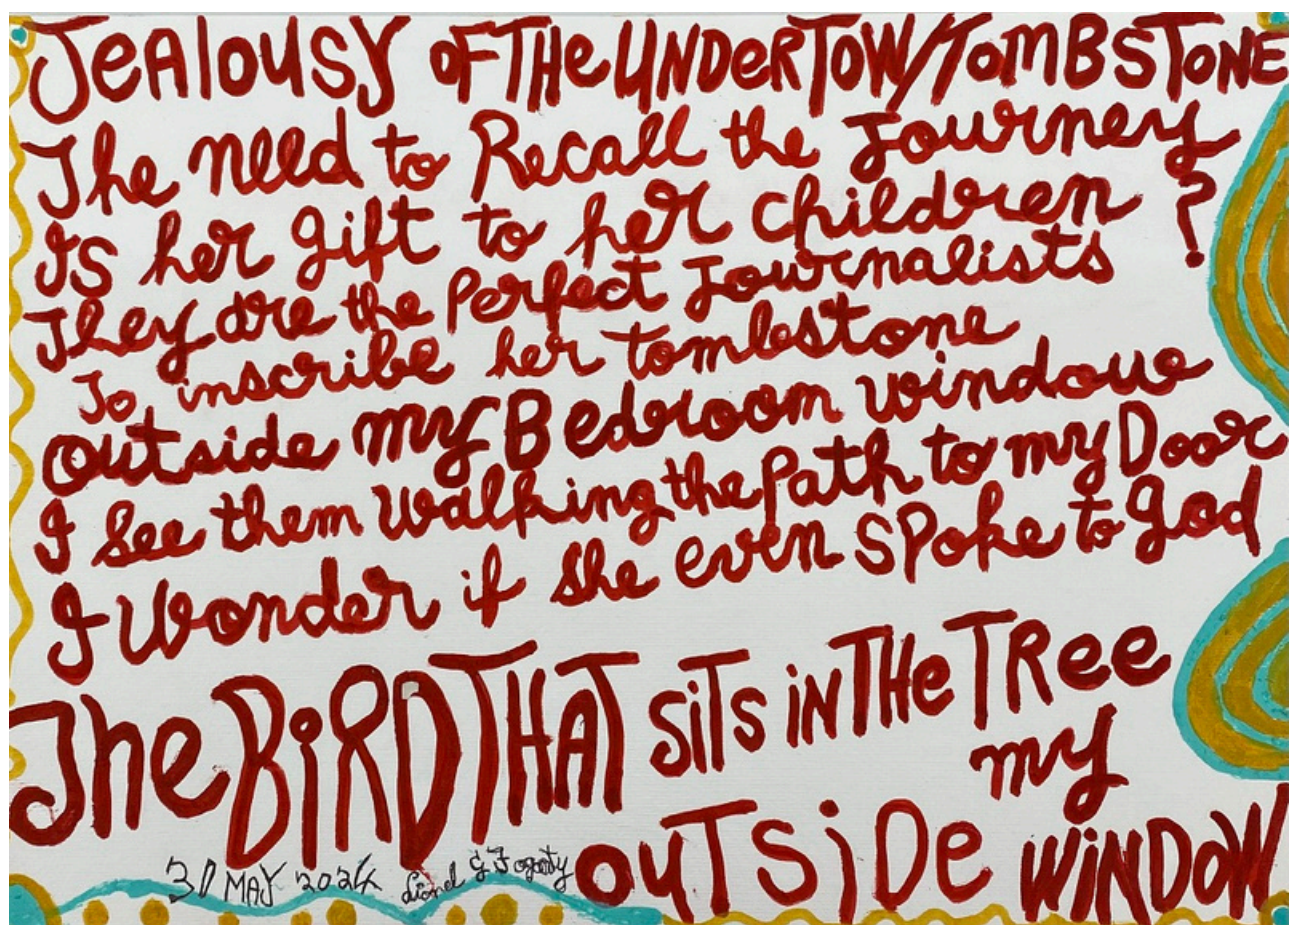 JeAlousY oF THe UNDerTOW/TomBSTONE
The need to Recall the Journey
Is her gift to her children ?
They are the Perfect Journalists
To inscribe her tombstone
outside my Bedroom window
I see them walking the Path to my Door
I Wonder if she even spoke to god
The BiRD THAT siTS iN THe TRee
my
ouTSiDe WiNDOW
30 MAY 2024 Lionel G Fogarty